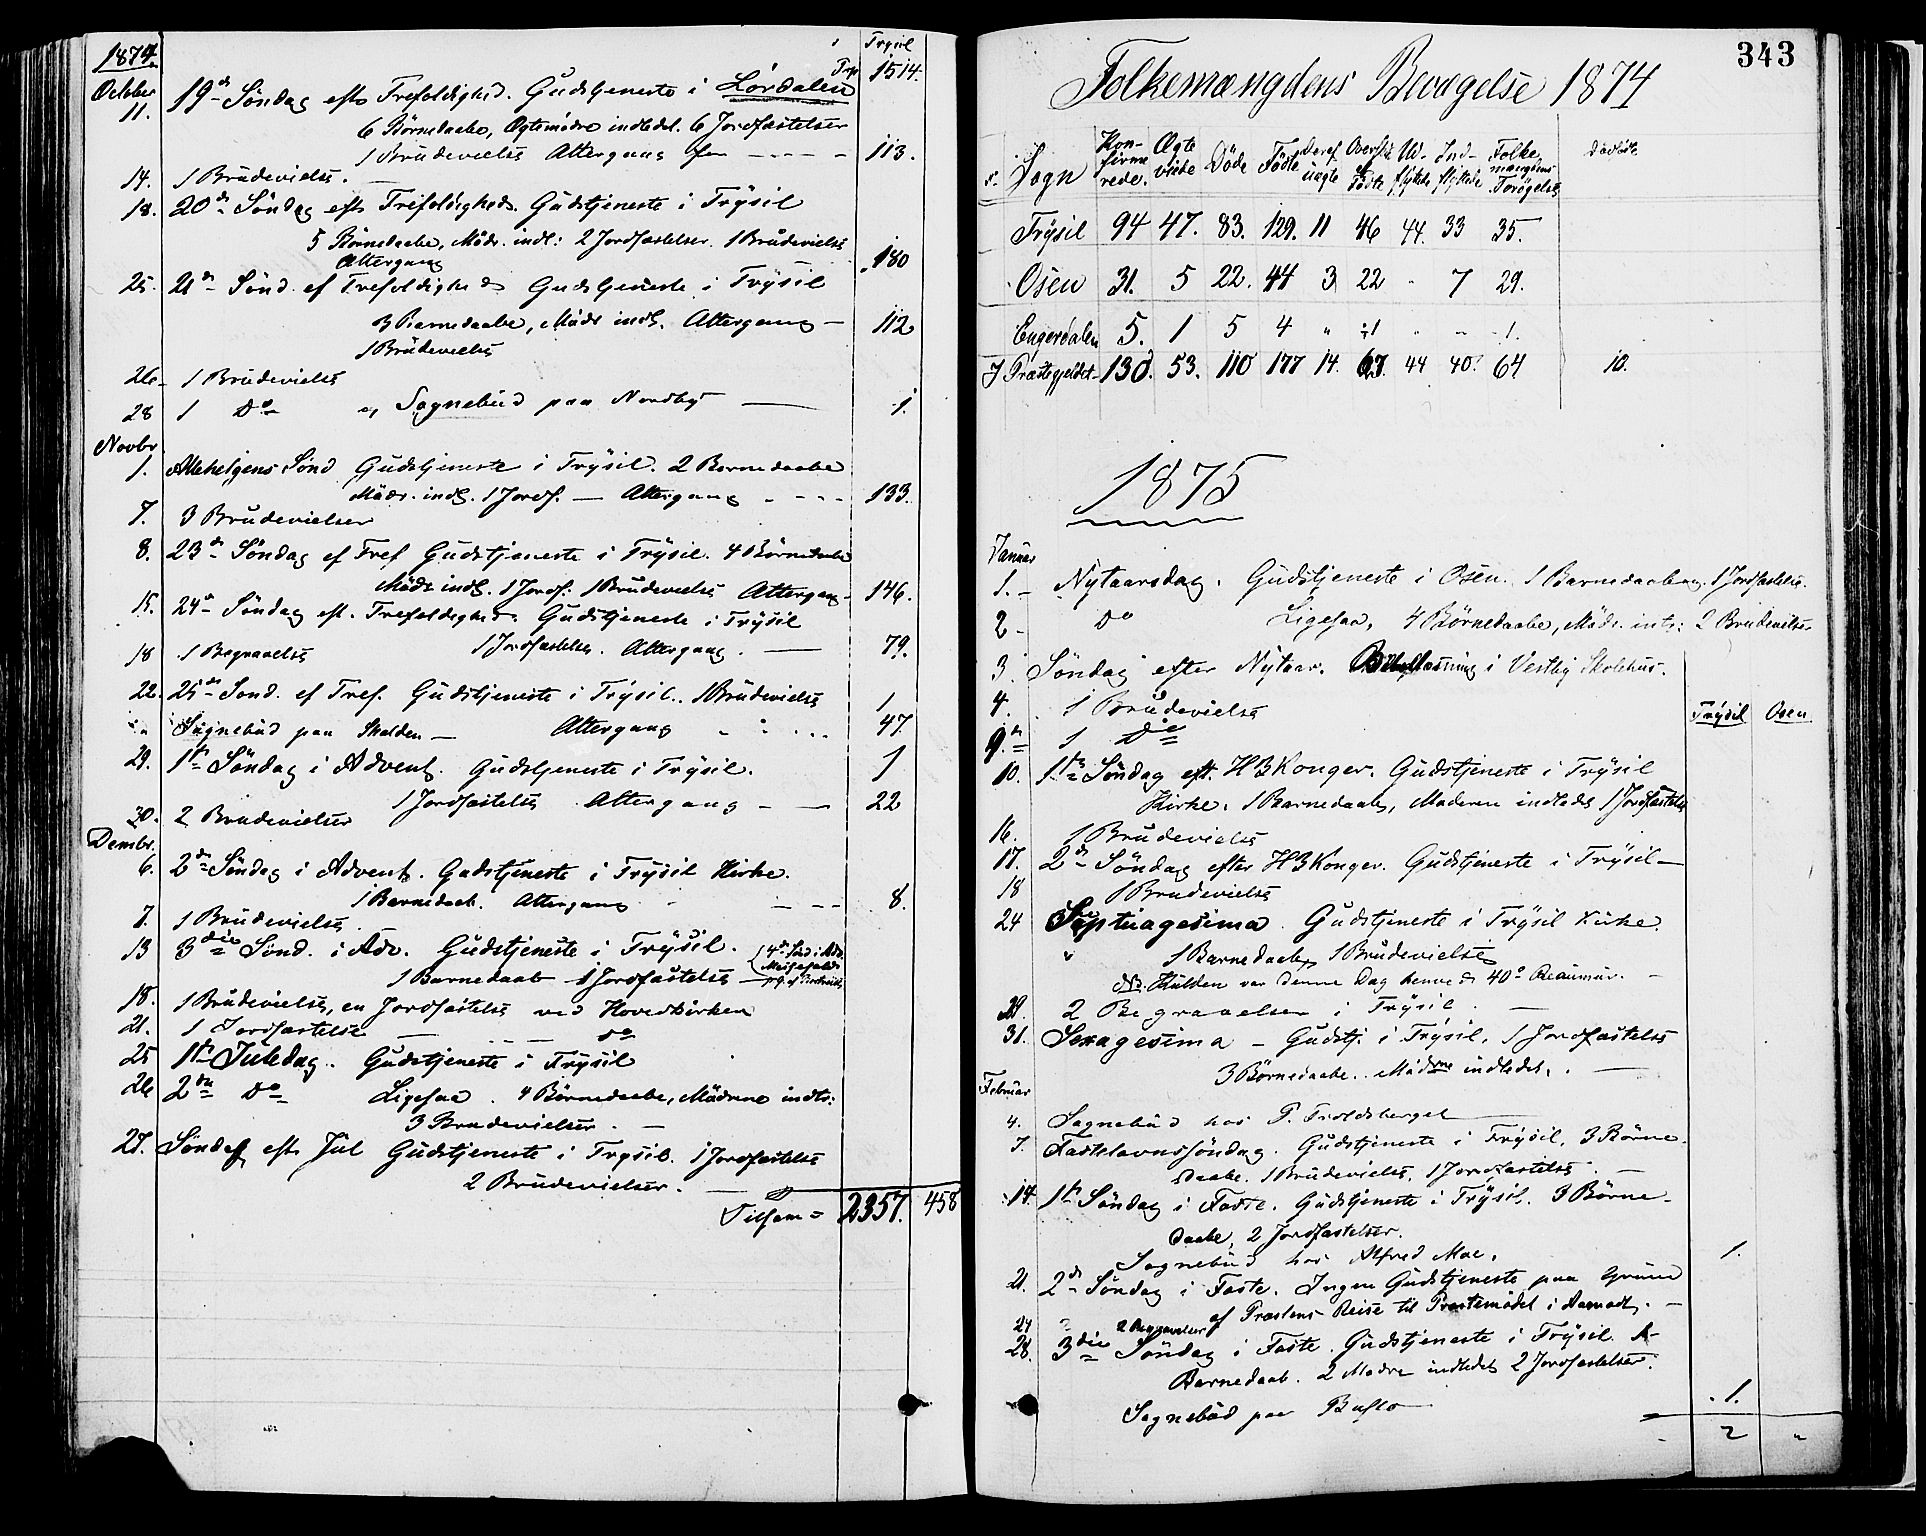 1874.
Trysil
October
Trp 1514.
11. 19de Søndag eft Trefoldighed. Gudstjeneste i Lørdalen
6 Børnedaabe, Ægtemødre indledet. 6 Jordfæstelser
1 Brudevielse Altergang for - - - - 113.
14. 1 Brudevielse.
18. 20de Søndag eft Trefoldigheds. Gudstjeneste i Trysil
5 Børnedaabe, Mødr. indl: 2 Jordfæstelser. 1 Brudevielse
Altergang 180
25. 21de Sønd. ef Trefoldigheds Gudstjeneste i Trysil
3 Barnedaabe, Mødr indl. Altergang - 112
1 Brudevielse
26. 1 Brudevielse
28 1 Do og Sognebud paa Nordby - 1.
Novbr
1. Allehelgens Sønd. Gudstjeneste i Trysil. 2 Børnedaabe
Mødr. indl. 1 Jordf. - Altergang - - - - 133.
7. 3 Brudevielser
8. 23de Søndag ef Tref Gudstjeneste i Trysil. 4 Børnedaabe
Mødr indl. 1 Jordf: 1 Brudevielse Altergang - 146.
15. 24de Søndag eft. Trefoldigheds Gudstjeneste i Trysil
1 Jordfæstelse. Altergang. - 79.
18 1 Begravelse
22. 25de Sønd. ef Tref. Gudstjeneste i Trysil.. 1 Brudevielse 1
" Sognebud paa Skalden - Altergang - - ... 47.
29. 1ste Søndag i Advent. Gudstjeneste i Trysil. 1
1 Jordfæstelse Altergang - - 22
30. 2 Brudevielser
Decmbr.
6. 2de Søndag i Advent. Gudstjeneste i Trysil Kirke.
1 Barnedaab. Altergang - - - - 8.
7. 1 Brudevielse.
13 3die Sønd. i Adv. Gudstjeneste i Trysil. (4de Sønd i Adv.
1 Barnedaab 1 Jordfæstelse - Messefald
18. 1 Brudevielse, en Jordfæstelse ved Hovedkirken
21. 1 Jordfæstelse - - - - do
25 1ste Juledag. Gudstjeneste i Trysil
26 2den Do Ligesaa. 4 Børnedaabe, Mødrene indle:
3 Brudevielser. -
27. Søndag eft Jul Gudstjeneste i Trysil. 1 Jordfæstelse
2 Brudevielser. -
Tilsam = 2357. 458
343
Folkemængdens Bevægelse 1874
Sogn Konfirmerede. Ægteviede Døde Fødte Deraf uægte Overskud af Fødte Udflyttede Indflyttede Folkemængdens Forøgelse Dødfødte
Trysil 94 47. 83. 129. 11 46 44. 33 35.
Osen 31. 5 22. 44 3 22 " 7 29.
Engerdalen 5. 1 5 4 " ÷1 " " 1.
I Præstegjeldet - 130. 53. 110 177 14. 67. 44 40. 64 10.
1875
Januar
1. - Nytaarsdag. Gudstjeneste i Osen. 1 Barnedaab og 1 Jordfæstelse.
2 - Do Ligesaa, 4 Børnedaabe, Mødr. intr: 2 Brudevielser
3. Søndag efter Nytaar. Bibellæsning i Vestby Skolehus.
Trysil Osen
4. 1 Brudevielse
9de 1 Do
10. 1ste Søndag eft. H3Konger. Gudstjeneste i Trysil
Kirke. 1 Barnedaab, Moderen indledet 1 Jordfæstelse
16. 1 Brudevielse
17. 2de Søndag efter H3Konger. Gudstjeneste i Trysil -
18 1 Brudevielse
24 Septuagesima. Gudstjeneste i Trysil Kirke.
" 1 Barnedaab, 1 Brudevielse
NB. Kulden var denne Dag henved 40° Reaumur. -
29. 2 Begravelser i Trysil -
31. Sexagesima - Gudstj. i Trysil. 1 Jordfæstelse
3 Børnedaabe.. Mødrene indledet. . -
Februar
4. Sognebud hos P. Troldsberget
7. Fastelavnssøndag. Gudstjeneste i Trysil. 3 Børne-
daabe. 1 Brudevielse. 1 Jordfæstelse. -
14. 1ste Søndag i Faste. Gudstjeneste i Trysil. 3 Børne-
daabe, 2 Jordfæstelser.
Sognebud hos Alfred Moe. 1.
21. 2de Søndag i Faste. Ingen Gudstjeneste paa Grund
af Præstens Reise til Præstemødet i Aamodt. -
24 2 Begravelser
28. 3die Søndag i Faste. Gudstjeneste i Trysil. 1-
Barnedaab. 2 Mødre indledet 2 Jordfæstelser.
Sognebud paa Buflo - 1.
2 "